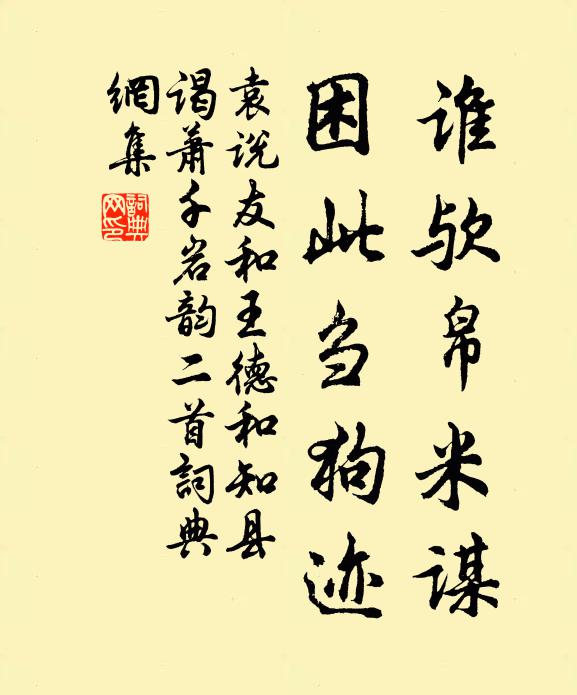 谁欤帛米谋
困此刍狗迹
袁说友和王德和知县
谒萧千岩韵二首詞典
網集
詞典网印